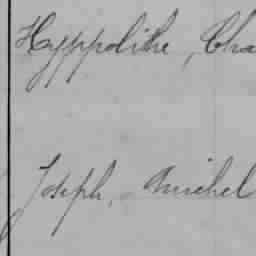 Hyppolithe, Cha
Joseph, Michel